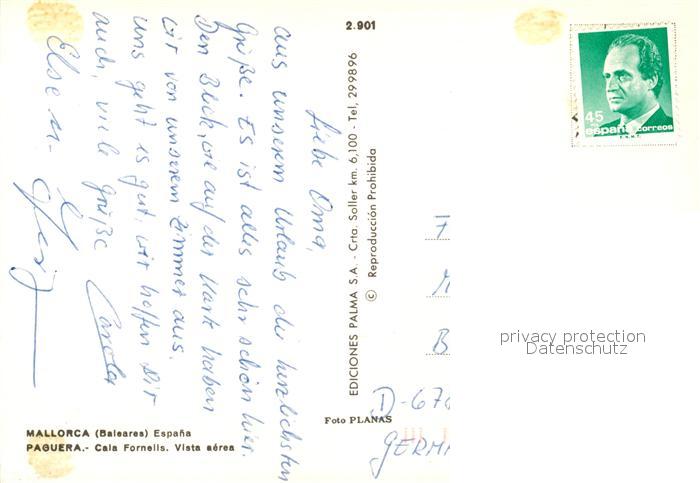 2.901
Liebe Oma,
aus unserem Urlaub die herzlichsten
Grüße. Es ist alles sehr schön hier.
Den Blick, wie auf der Karte haben
wir von unserem Zimmer aus.
Uns geht es gut, wir hoffen Dir
auch, viele Grüße Carola
Else u.
EDICIONES PALMA S.A. - Crta. Soller km. 6,100 - Tel, 299896
© Reproducción Prohibida
45
españa correos
F
M
B
D-670
GERMA
privacy protection
Datenschutz
Foto PLANAS
MALLORCA (Baleares) España
PAGUERA.- Cala Fornells. Vista aérea